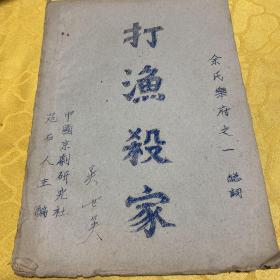 余氏樂府之一 總詞
打漁殺家
吳世英
范石人主編
中國京劇研究社